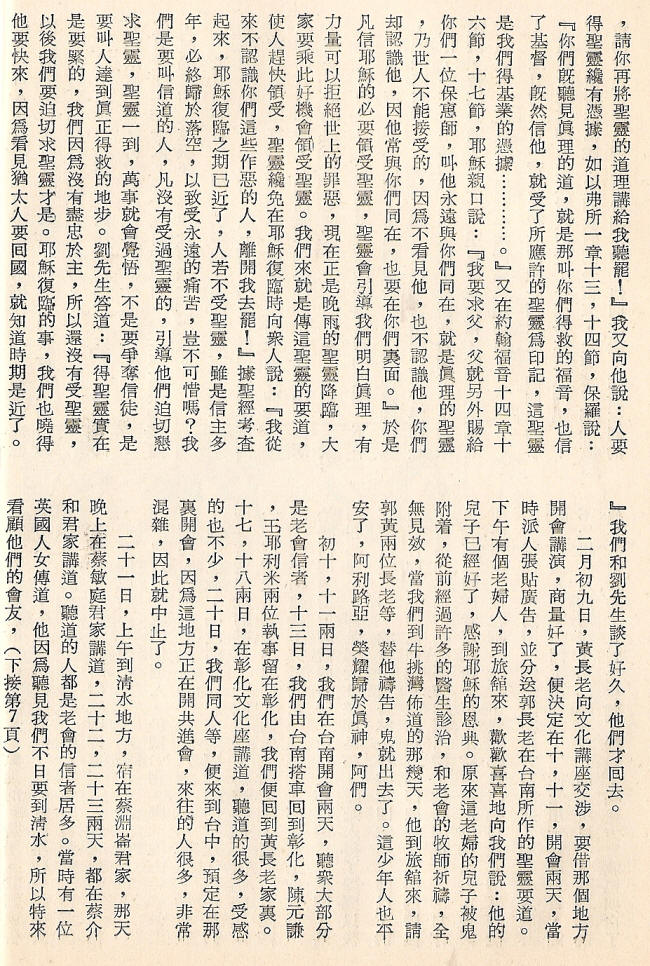 ，請你再將聖靈的道理講給我聽罷！』我又向他說：人要
得聖靈纔有憑據，如以弗所一章十三，十四節，保羅說：
『你們旣聽見眞理的道，就是那叫你們得救的福音，也信
了基督，旣然信他，就受了所應許的聖靈爲印記，這聖靈
是我們得基業的憑據…………。』又在約翰福音十四章十
六節，十七節，耶穌親口說：『我要求父，父就另外賜給
你們一位保惠師，叫他永遠與你們同在，就是眞理的聖靈
，乃世人不能接受的，因爲不看見他，也不認識他，你們
却認識他，因他常與你們同在，也要在你們裏面。』於是
凡信耶穌的必要領受聖靈，聖靈會引導我們明白眞理，有
力量可以拒絕世上的罪惡，現在正是晚雨的聖靈降臨，大
家要乘此好機會領受聖靈。我們來就是傳這聖靈的要道，
使人趕快領受，聖靈纔免在耶穌復臨時向衆人說：『我從
來不認識你們這些作惡的人，離開我去罷！』據聖經考査
起來，耶穌復臨之期已近了，人若不受聖靈，雖是信主多
年，必終歸於落空，以致受永遠的痛苦，豈不可惜嗎？我
們是要叫信道的人，凡沒有受過聖靈的，引導他們迫切懇
求聖靈，聖靈一到，萬事就會覺悟，不是要爭奪信徒，是
要叫人達到眞正得救的地步。劉先生答道：『得聖靈實在
是要緊的，我們因爲沒有盡忠於主，所以還沒有受聖靈，
以後我們要迫切求聖靈才是。耶穌復臨的事，我們也曉得
他要快來，因爲看見猶太人要回國，就知道時期是近了。
』我們和劉先生談了好久，他們才回去。
二月初九日，黃長老向文化講座交涉，要借那個地方
開會講演，商量好了，便決定在十，十一，開會兩天，當
時派人張貼廣告，並分送郭長老在台南所作的聖靈要道。
下午有個老婦人，到旅舘來，歡歡喜喜地向我們說：他的
兒子已經好了，感謝耶穌的恩典。原來這老婦的兒子被鬼
附着，從前經過許多的醫生診治，和老會的牧師祈禱，全
無見效，當我們到牛挑灣佈道的那幾天，他到旅舘來，請
郭黃兩位長老等，替他禱告，鬼就出去了。這少年人也平
安了，阿利路亞，榮耀歸於眞神，阿們。
初十，十一兩日，我們在台南開會兩天，聽衆大部分
是老會信者，十三日，我們由台南搭車回到彰化，陳元謙
，王耶利米兩位執事留在彰化，我們便回到黃長老家裏。
十七，十八兩日，在彰化文化座講道，聽道的很多，受感
的也不少，二十日，我們同人等，便來到台中，預定在那
裏開會，因爲這地方正在開共進會，來往的人很多，非常
混雜，因此就中止了。
二十一日，上午到清水地方，宿在蔡淵崙君家，那天
晚上在蔡敏庭君家講道，二十二，二十三兩天，都在蔡介
和君家講道。聽道的人都是老會的信者居多。當時有一位
英國人女傳道，他因爲聽見我們不日要到清水，所以特來
看顧他們的會友，（下接第7頁）